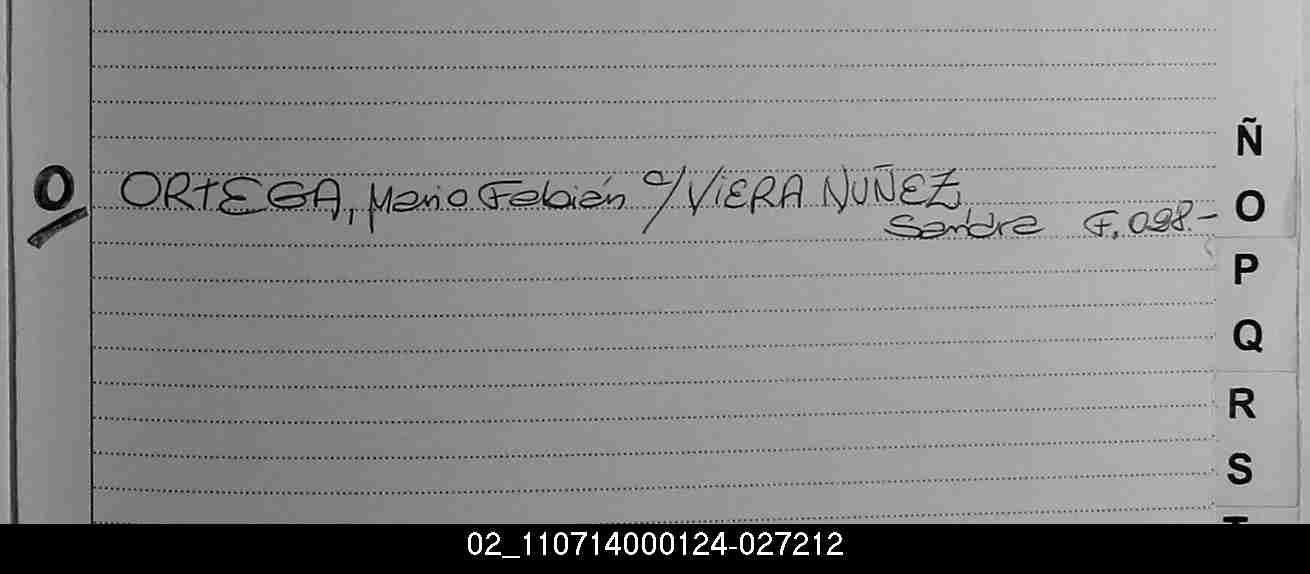 O ORTEGA, Mario Fabián c/ VIERA NUÑEZ
Sandra F. 098.-
Ñ
O
P
Q
R
S
T
02_110714000124-027212